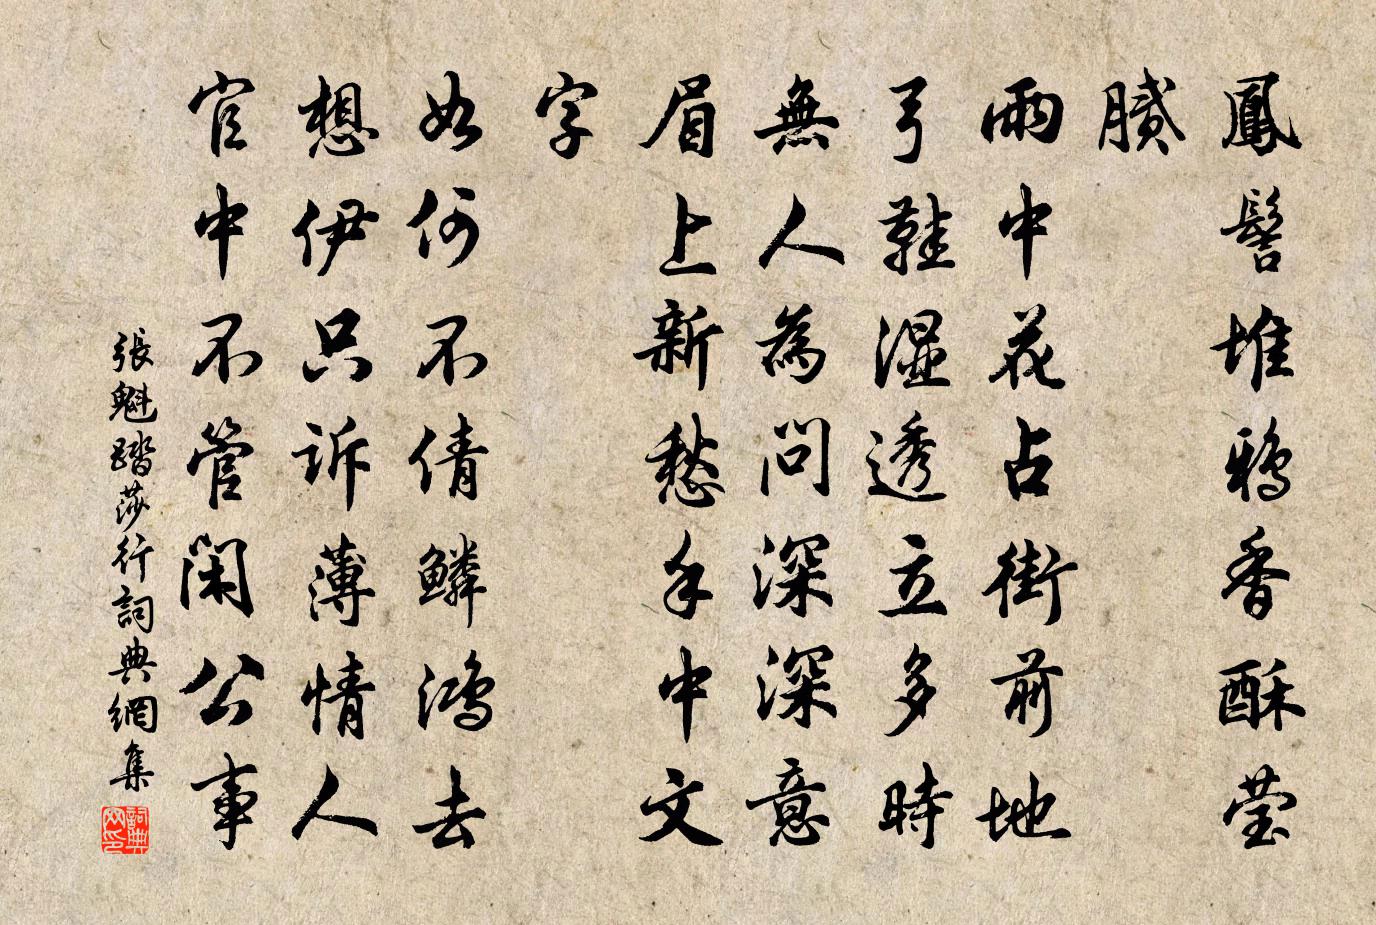 鳳髻堆鴉香酥瑩
膩
雨中花占街前地
弓鞋濕透立多時
無人為問深深意
眉上新愁手中文
字
如何不倩鱗鴻去
想伊只訴薄情人
官中不管閑公事
張魁踏莎行詞典網集
詞典網印